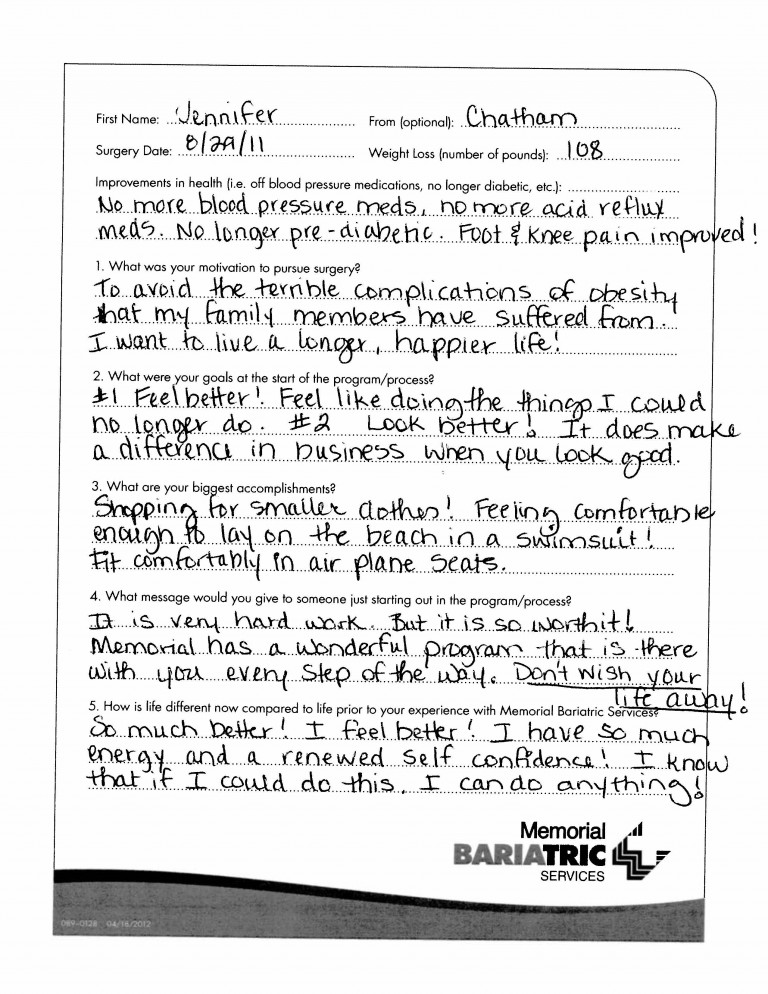 First Name: Jennifer From (optional): Chatham
Surgery Date: 8/29/11 Weight Loss (number of pounds): 108
Improvements in health (i.e. off blood pressure medications, no longer diabetic, etc.):
No more blood pressure meds, no more acid reflux
meds. No longer pre-diabetic. Foot & Knee pain improved!
1. What was your motivation to pursue surgery?
To avoid the terrible complications of obesity
that my family members have suffered from.
I want to live a longer, happier life!
2. What were your goals at the start of the program/process?
#1 Feel better! Feel like doing the things I could
no longer do. #2 Look better! It does make
a difference in business when you look good.
3. What are your biggest accomplishments?
Shopping for smaller clothes! Feeling comfortable
enough to lay on the beach in a swimsuit!
Fit comfortably in air plane seats.
4. What message would you give to someone just starting out in the program/process?
It is very hard work. But it is so worth it!
Memorial has a wonderful program that is there
with you every step of the way. Don't wish your
life away!
5. How is life different now compared to life prior to your experience with Memorial Bariatric Services?
So much better! I feel better! I have so much
energy and a renewed self confidence! I know
that if I could do this, I can do anything!
Memorial
BARIATRIC
SERVICES
089-0128 04/18/2012